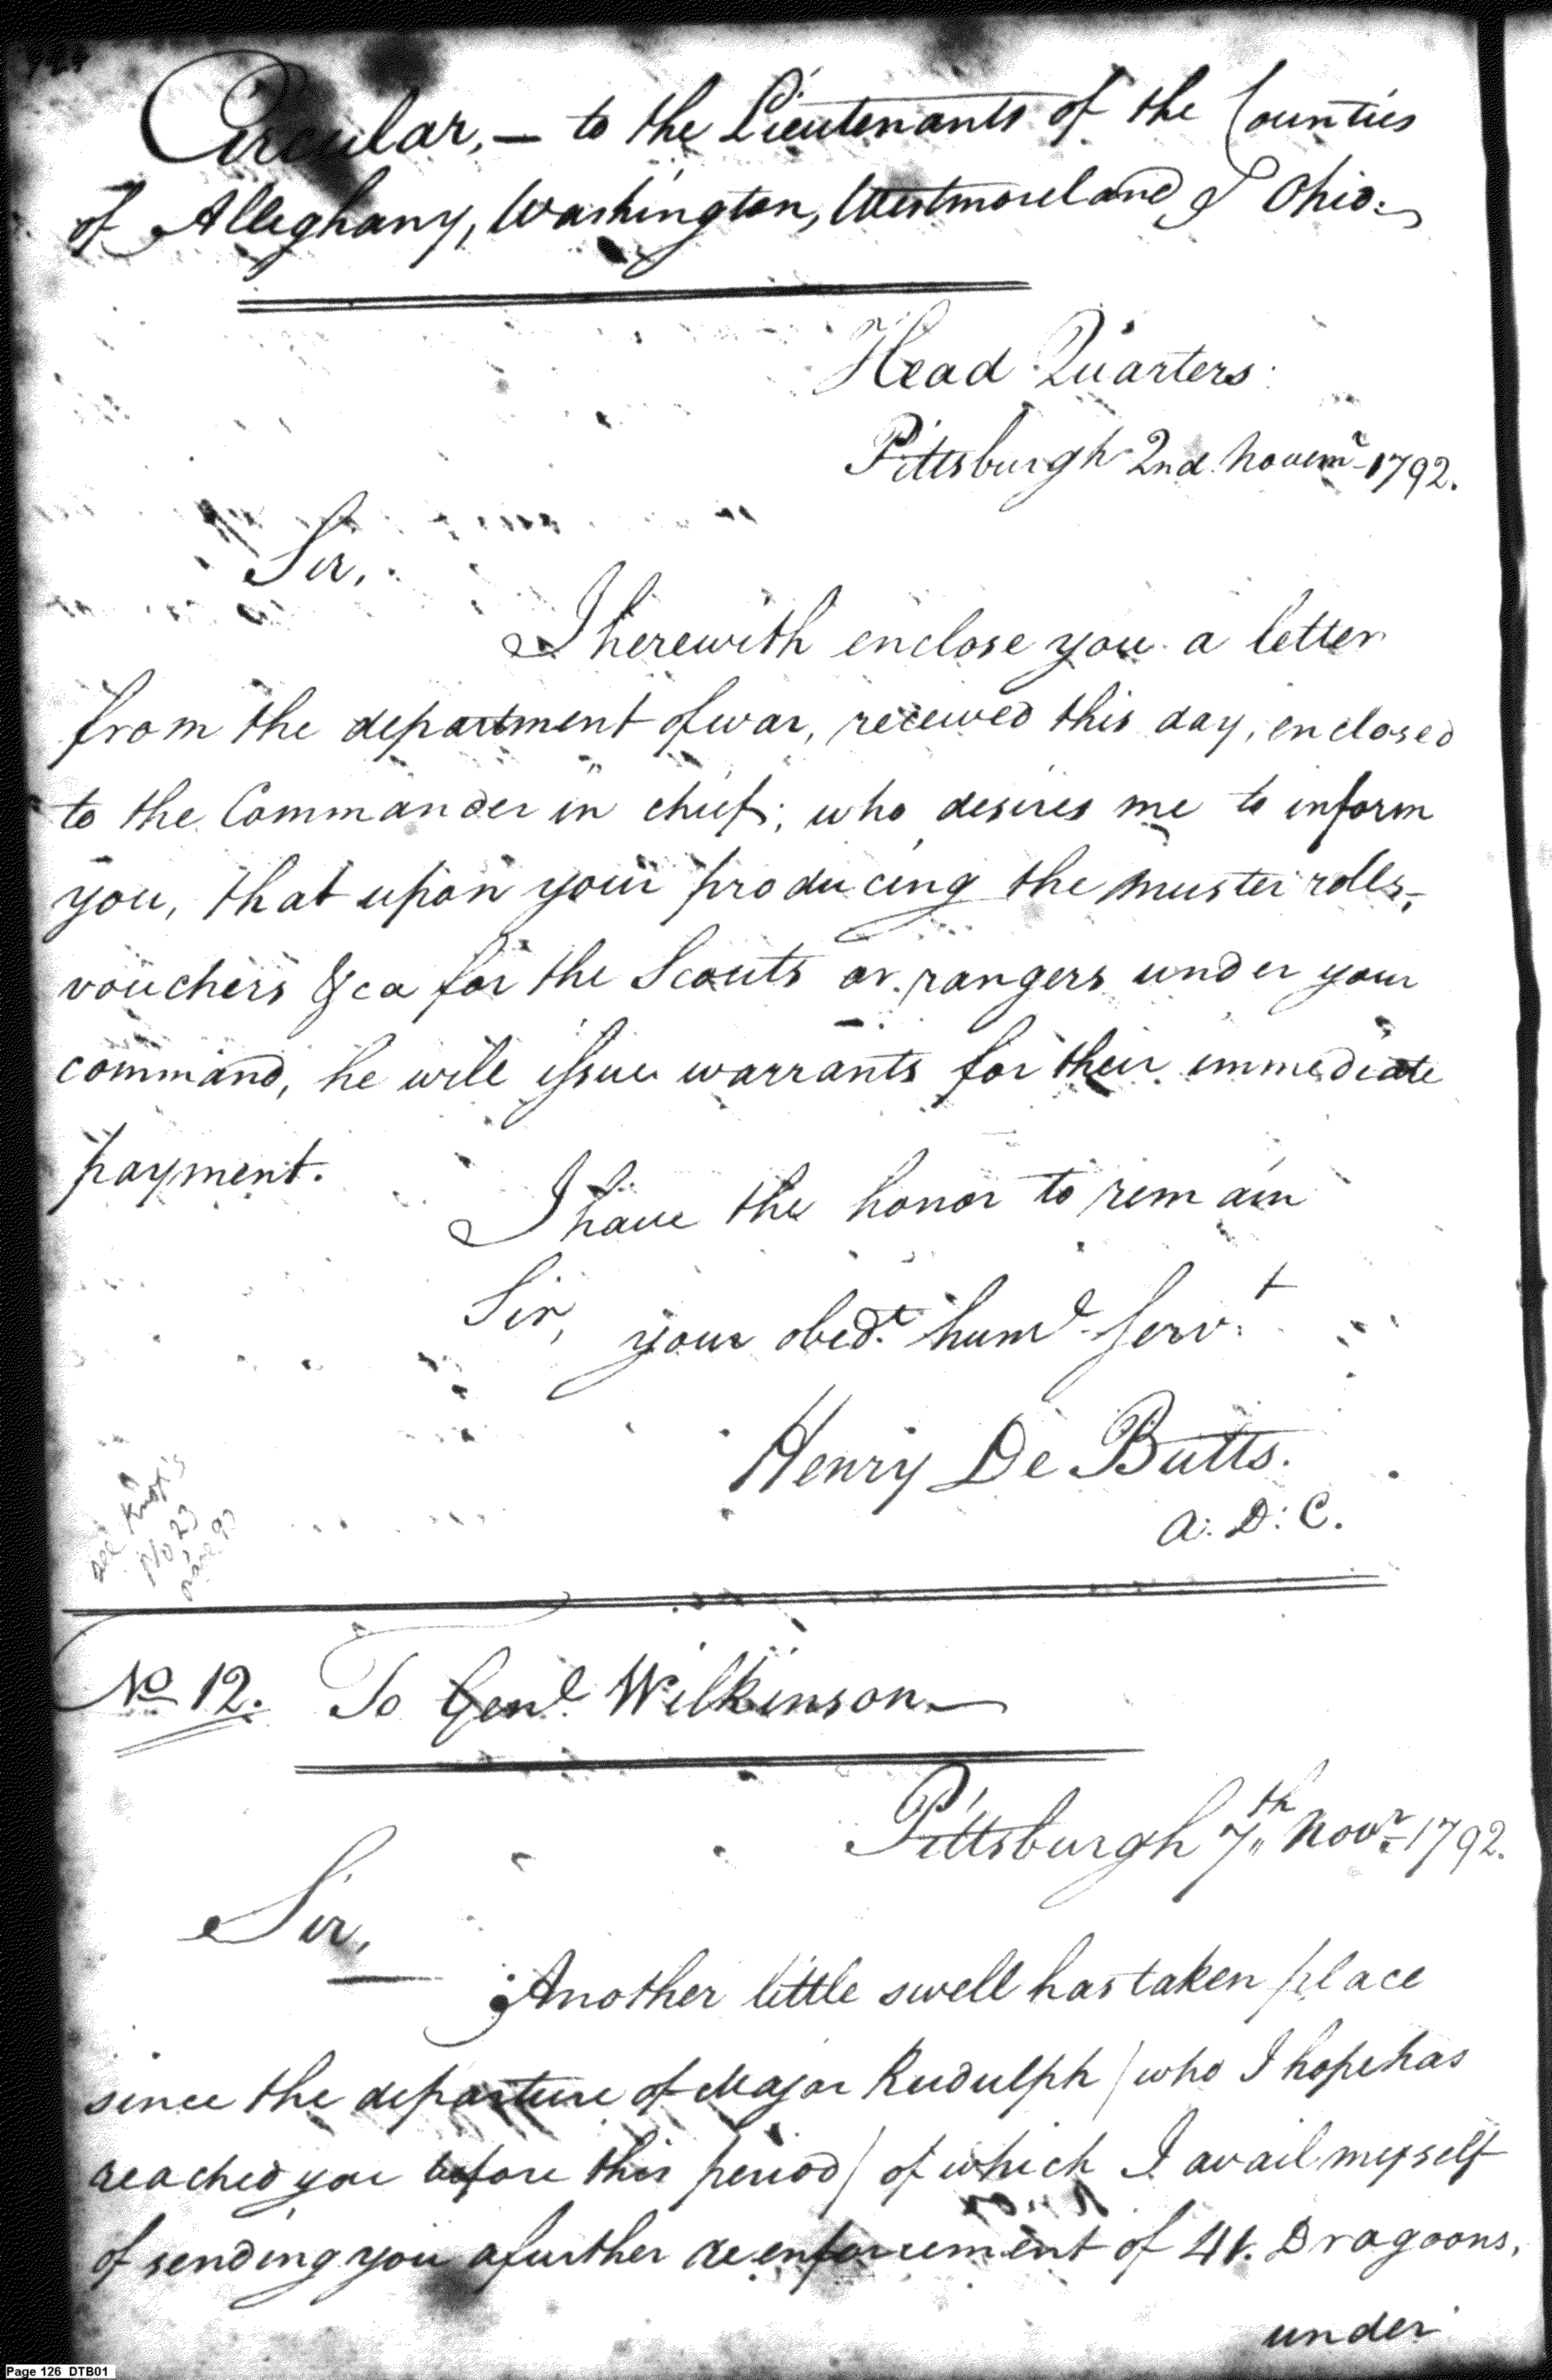 Circular, — to the Lieutenants of the Counties
of Alleghany, Washington, Westmoreland & Ohio.
Head Quarters
Pittsburgh 2nd. Novemr. 1792.
Sir,
I herewith enclose you a letter
from the department of war, received this day, enclosed
to the Commander in chief; who desires me to inform
you, that upon your producing the muster rolls,
vouchers &ca for the Scouts or rangers under your
command, he will issue warrants for their immediate
payment.
I have the honor to remain
Sir,
your obedt. humle. Servt.
Henry De Butts.
A: D: C.
see Knox's
No 23
page 93
No 12. To Genl. Wilkinson —
Pittsburgh 7th Novr. 1792.
Sir,
Another little swell has taken place
since the departure of Major Rudulph / who I hope has
reached you before this period / of which I avail myself
of sending you a further reenforcement of 41. Dragoons,
under
Page 126 DTB01